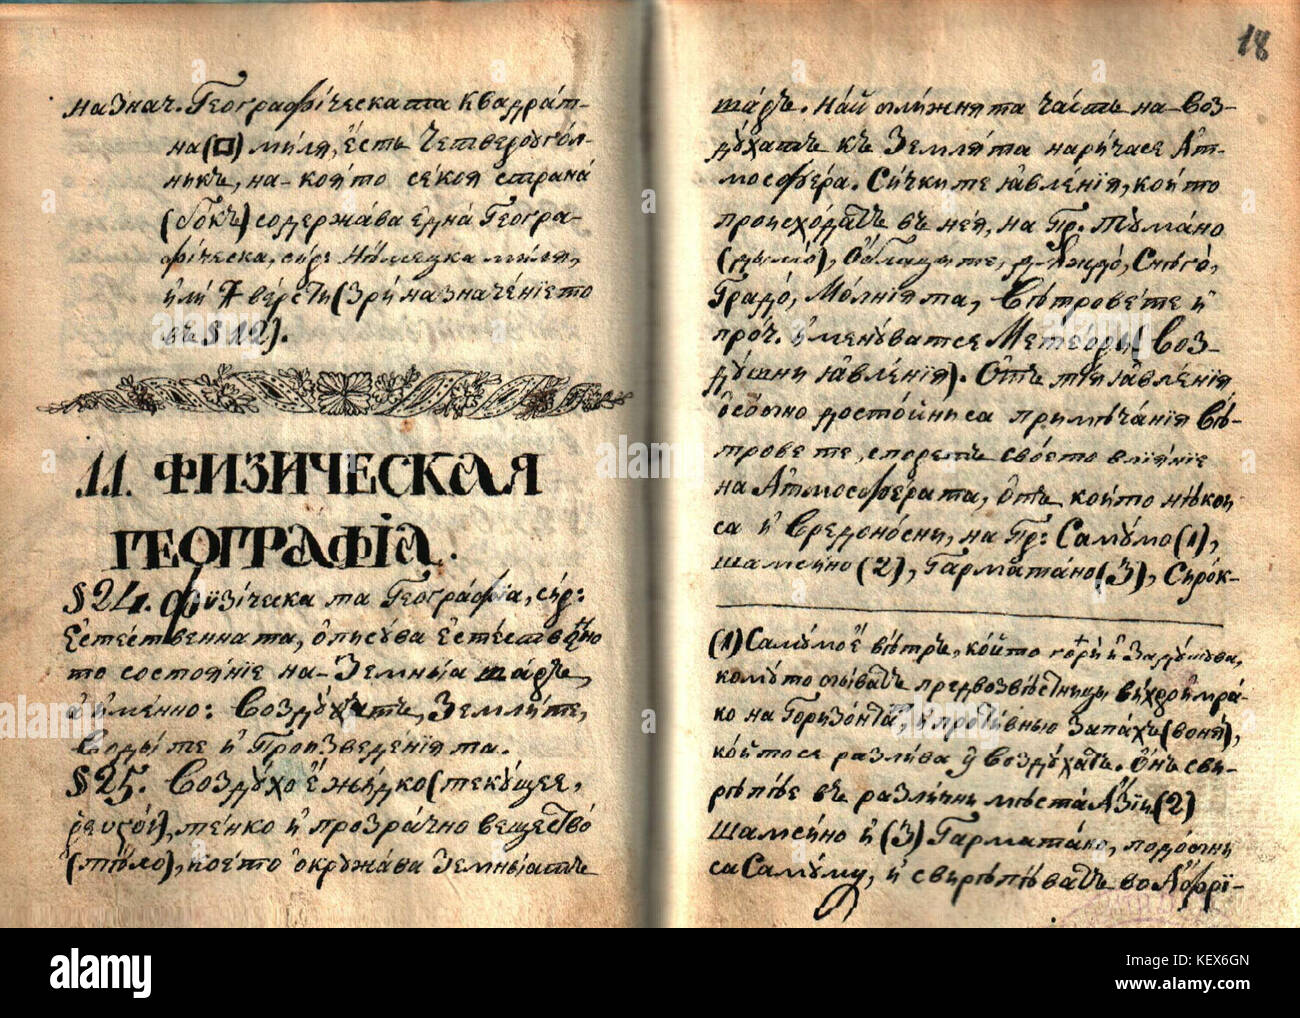 назнач. Географіческата квадрат-
на (□) миля, е́сть четвероуго́л-
никъ, на-коя́то се́коя страна́
(бокъ) содержа́ва една́ Геогра-
фіческа, сир: Нѣмецка миля,
и́ли 7 ве́рсти (Зри́ назначе́ніето
въ § 12).
11. ФИЗИЧЕСКАЯ
ГЕОГРАФІА.
§ 24. Фѵзі́ческа та Геогра́фіа, си́р:
Есте́ственната, опису́ва Есте́ственно
то состоя́ніе на-Земны́а ша́ръ,
а́ и́менно: Возду́хатъ, Земли́те,
Воды́те и́ Произведе́нія та.
§ 25. Возду́хо є́ жы́дко (теку́щее,
), те́нко и́ прозра́чно вещество́
(тѣ́ло), кое́то окружа́ва Земны́атъ
18
ша́ръ. На́й бли́жня та ча́сть на-Воз-
ду́хатъ къ Земля́та нари́часе Ат-
мосфе́ра. Си́чки те явле́нія, кои́ то
происхо́датъ въ нея́, на Пр. Тума́но
(дымо́), О́блаци те, дъждо́, Снѣго́,
Градо́, Мо́лнія та, Вѣ́трове́те и́
про́ч. и́мену́ватсе Метео́ры (Воз-
ду́шни явле́нія). Отъ тія явле́нія
осо́бно досто́йни са примѣча́нія Вѣ-
трове те, споредъ сво́ето влія́ніе
на Атмосфе́рата, Отъ кои́то нѣ́кои
са и́ Вредоно́сни, на Пр: Саму́мо (1),
Шамси́но (2), Гармата́но (3), Сиро́к-
(1) Саму́мо е́ вѣ́тръ, ко́йто гори́ и́ Задуши́ва,
кому́то бы́ватъ предвозвѣ́стницы ви́хро и́ мра́-
ко на Горизо́нта, и́ проти́вныо За́пахъ (воня́),
ко́йтосе разли́ва у́ возду́хатъ. О́нъ сви-
рѣ́пѣе въ разли́чни мѣста А́зіи (2)
Шамси́но и́ (3) Гармата́но, подо́бни
са Саму́му, и́ свирѣ́пѣватъ во А́фрі-
alamy
Image ID: KEX6GN
www.alamy.com